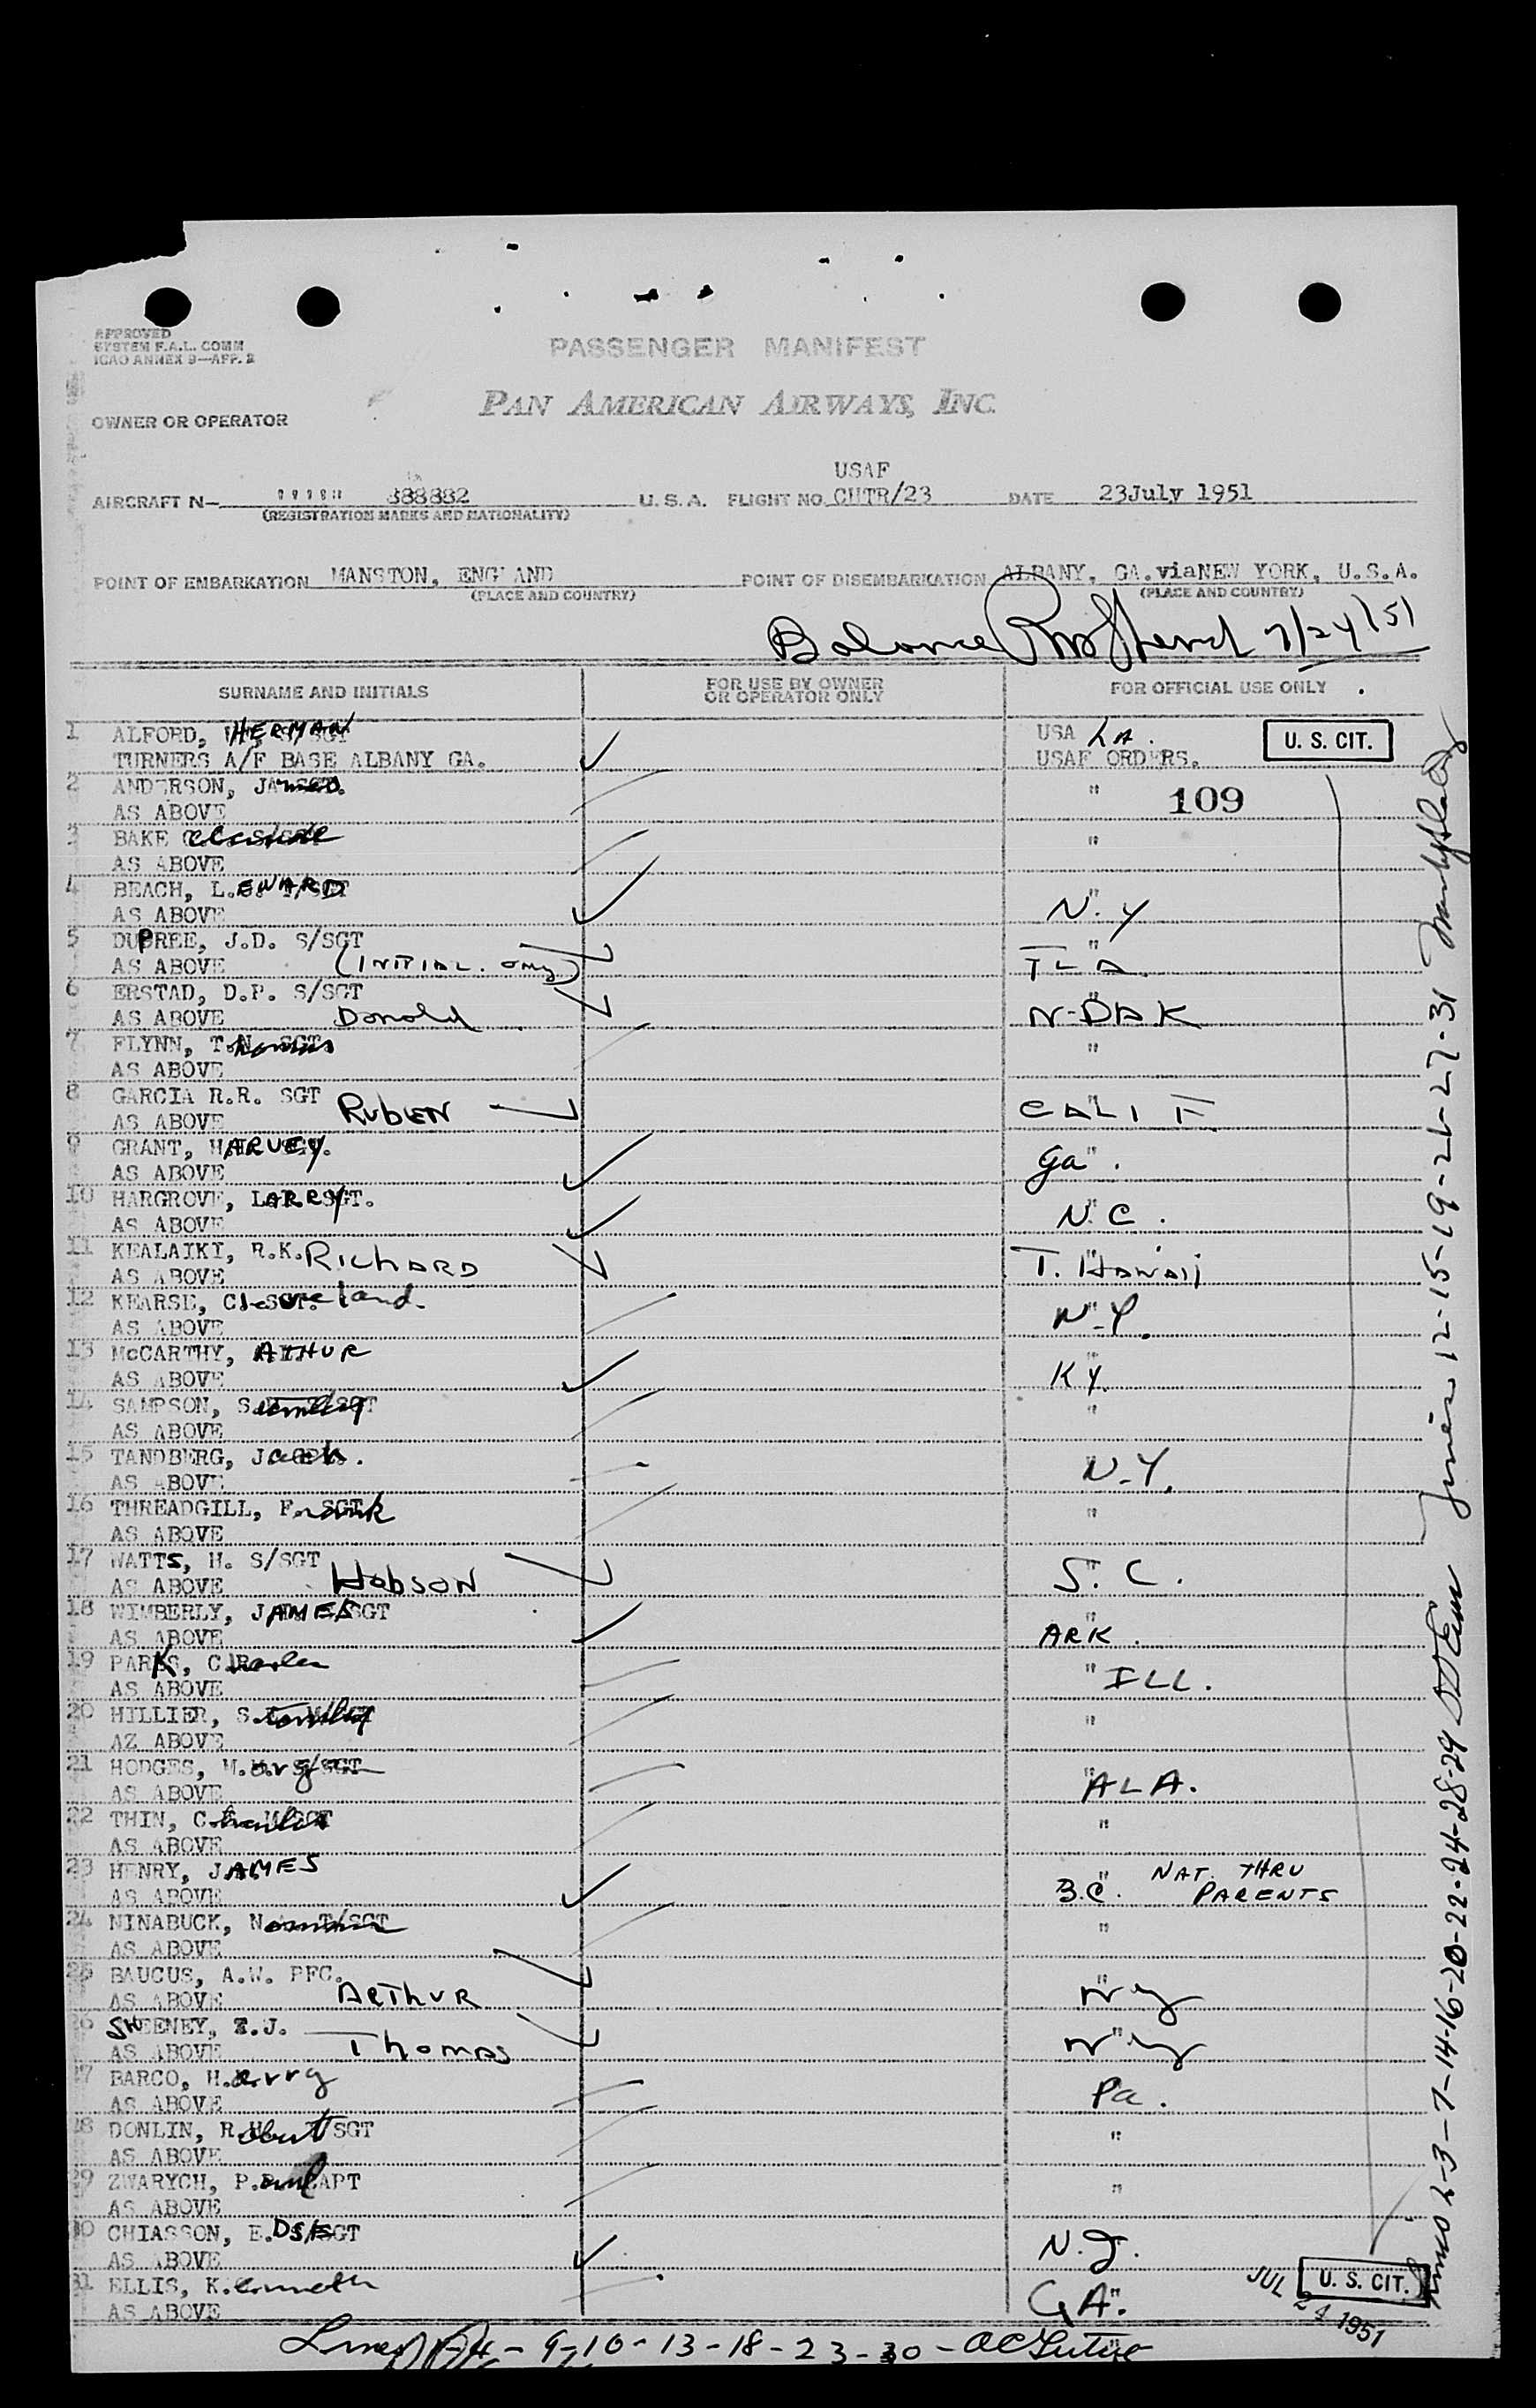 APPROVED
SYSTEM F.A.L. COMM
ICAO ANNEX 9—APP. 2
PASSENGER MANIFEST
PAN AMERICAN AIRWAYS, INC.
OWNER OR OPERATOR
USAF
AIRCRAFT N- 888882 U.S.A. FLIGHT NO. CHTR/23 DATE 23July 1951
(REGISTRATION MARKS AND NATIONALITY)
POINT OF EMBARKATION MANSTON, ENGLAND POINT OF DISEMBARKATION ALBANY, GA.viaNEW YORK, U.S.A.
(PLACE AND COUNTRY) (PLACE AND COUNTRY)
Balance 7/24/51
SURNAME AND INITIALS FOR USE BY OWNER OR OPERATOR ONLY FOR OFFICIAL USE ONLY
1 ALFORD, HERMAN USA LA. U. S. CIT.
TURNERS A/F BASE ALBANY GA. USAF ORDERS.
2 ANDERSON, James " 109
AS ABOVE
3 BAKE "
AS ABOVE
4 BEACH, L. EWARD "
AS ABOVE N.Y
5 DUPREE, J.D. S/SGT "
AS ABOVE (INITIAL. only) FLA.
6 ERSTAD, D.P. S/SGT "
AS ABOVE Donald N-DAK
7 FLYNN, Thomas "
AS ABOVE
8 GARCIA R.R. SGT "
AS ABOVE RubEN CALIF
9 GRANT, HARVEY. "
AS ABOVE Ga.
10 HARGROVE, LARRY SGT. "
AS ABOVE N.C.
11 KEALAIKI, R.K. RIChARD "
AS ABOVE T. HAWAII
12 KEARSE, Cleveland. "
AS ABOVE N.Y.
13 McCARTHY, ATHUR "
AS ABOVE KY.
14 SAMPSON, S "
AS ABOVE
15 TANDBERG, Jack. "
AS ABOVE N.Y.
16 THREADGILL, Frank "
AS ABOVE
17 WATTS, H. S/SGT "
AS ABOVE HobSON S.C.
18 WIMBERLY, JAMES SGT "
AS ABOVE ARK.
19 PARKS, Charles " ILL.
AS ABOVE
20 HILLIER, Stanley "
AZ ABOVE
21 HODGES, M. "
AS ABOVE ALA.
22 THIN, Charles "
AS ABOVE
23 HENRY, JAMES " NAT. THRU
AS ABOVE B.C. PARENTS
24 NINABUCK, Norman "
AS ABOVE
25 BAUCUS, A.W. PFC. "
AS ABOVE ARThUR NY
26 SWEENEY, T.J. "
AS ABOVE Thomas NY
27 BARCO, Harry
AS ABOVE Pa.
28 DONLIN, Robert SGT "
AS ABOVE
29 ZWARYCH, Paul CAPT "
AS ABOVE
30 CHIASSON, E. SGT
AS ABOVE N.J.
31 ELLIS, Kenneth "
AS ABOVE GA.
U. S. CIT.
JUL 24 1951
Lines 1-4-9-10-13-18-23-30-
Lines 2-3-7-14-16-20-22-24-28-29
Lines 12-15-19-21-27-31